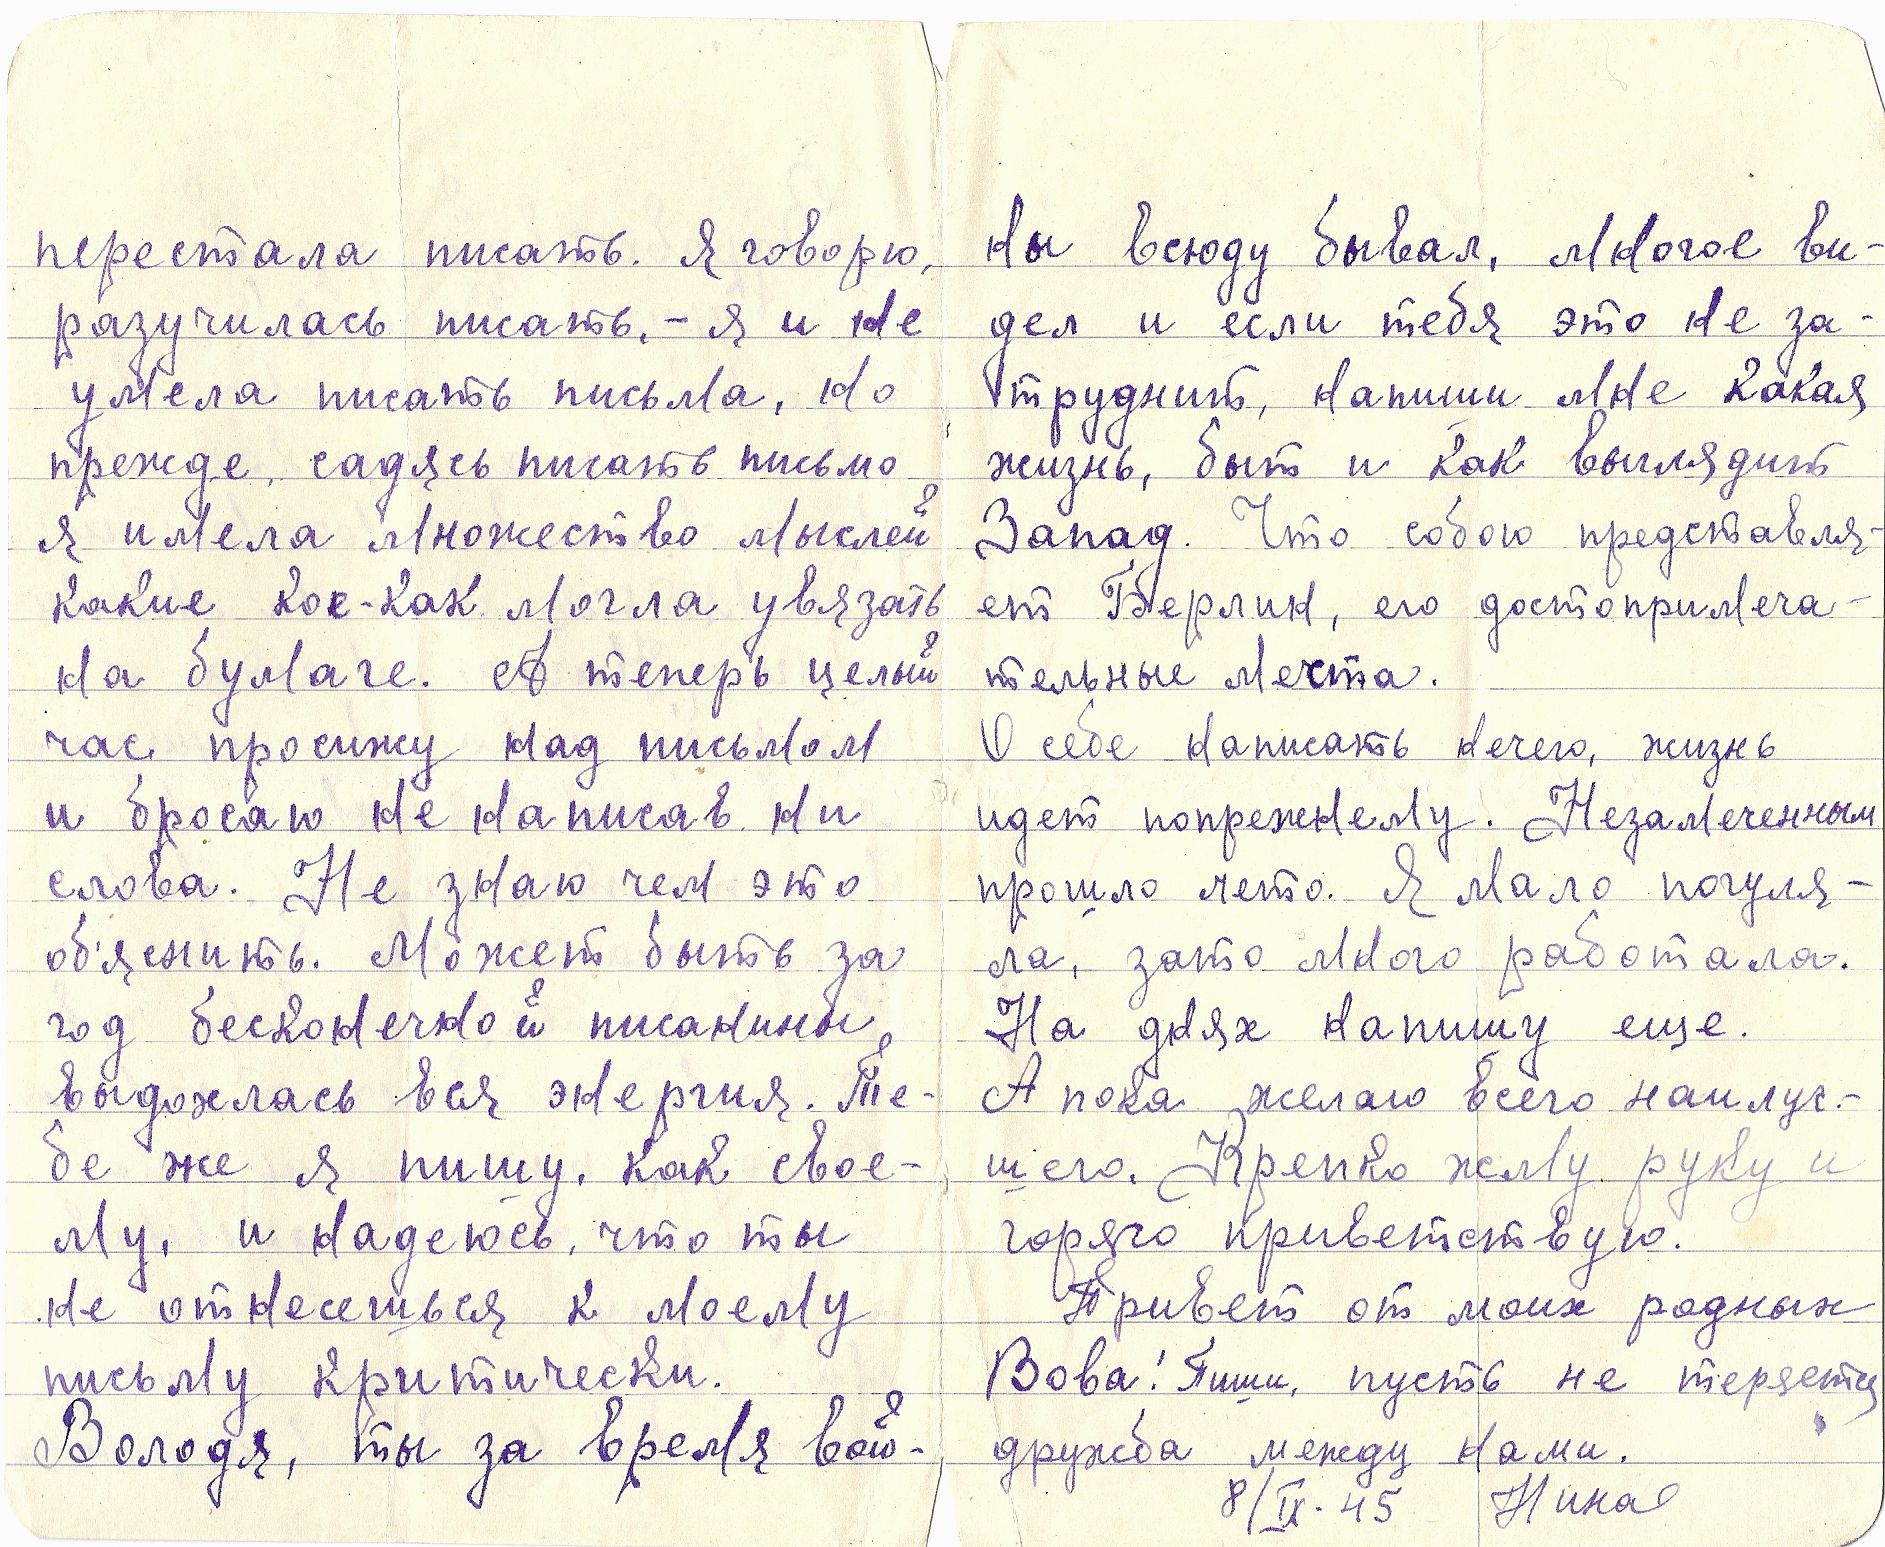 перестала писать. Я говорю,
разучилась писать, - я и не
умела писать письма, но
прежде, садясь писать письмо
я имела множество мыслей
какие кое-как могла увязать
на бумаге. А теперь целый
час просижу над письмом
и бросаю не написав ни
слова. Не знаю чем это
об'яснить. Может быть за
год бесконечной писанины
выдохлась вся энергия. Те-
бе же я пишу, как свое-
му, и надеюсь, что ты
не отнесешься к моему
письму критически.
Володя, ты за время вой-
ны всюду бывал, многое ви-
дел и если тебя это не за-
труднит, напиши мне какая
жизнь, быт и как выглядит
Запад. Что собою представля-
ет Берлин, его достопримеча-
тельные места.
О себе написать нечего, жизнь
идет попрежнему. Незамеченным
прошло лето. Я мало погуля-
ла, зато много работала.
На днях напишу еще.
А пока желаю всего наилуч-
шего. Крепко жму руку и
горячо приветствую.
Привет от моих родных
Вова! Пиши, пусть не теряется
дружба между нами.
8/IX-45 Нина